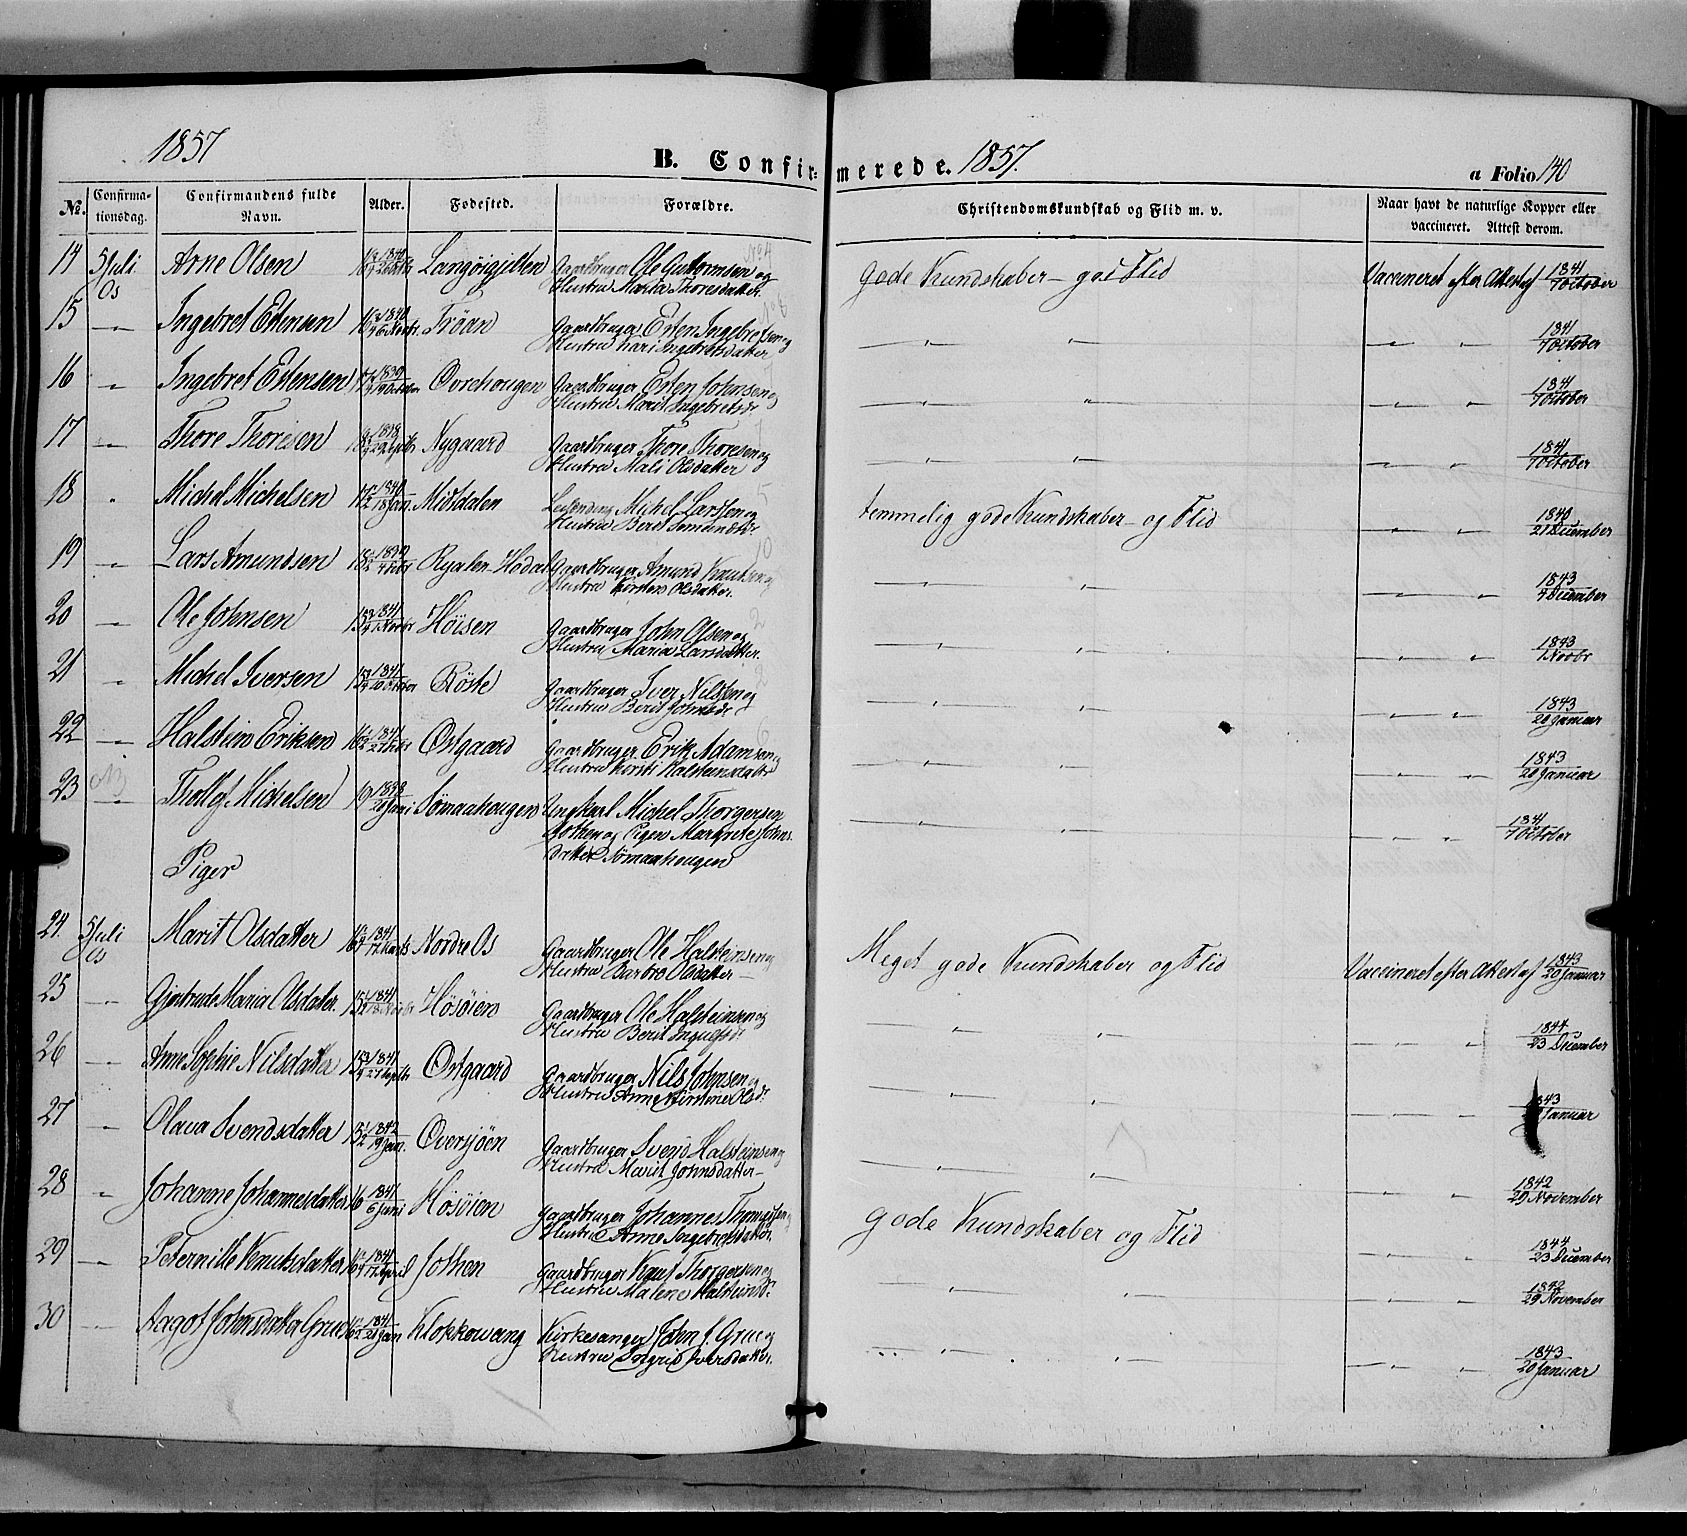 1857
B. Confirmerede. 1857.
a Folio 140
No. Confirmationsdag. Confirmandens fulde Navn. Alder. Fødested. Forældre. Christendomskundskab og Flid m. v. Naar havt de naturlige Kopper eller vaccineret. Attest derom.
14 5 Juli Os Arne Olsen 1840 Langörigjelten Gaardbruger Ole Guttormsen og
Hustru Marta Thoresdatter. gode Kundskaber - god Flid Vaccineret efter Attest af 1841 7 October
15 — " — Ingebret Estensen 1840 Tröan Gaardbruger Esten Ingebretsen og
Hustru Kari Ingebretsdatter — " — " — " — " 1841 7 October
16 " Ingebret Estensen 1839 Ovrehougen Gaardbruger Esten Johnsen og
Hustru Marit Ingebretsd. — " — " — " — " 1841 7 October
17 — " — Thore Thoresen 1838 Nygaard Gaardbruger Thore Thoresen og
Hustru Mali Olsdatter — " — " — " — " 1841 7 October
18 " Michel Michelsen 1840 18 Jan. Midtdalen Michel Larssen og
Hustru Berit temmelig gode Kundskaber - og Flid — " — " 1840 21 December
19 — " — Lars Amundsen Ryalen - Hodal Gaardbruger Amund Knudsen og
Hustru Kirsten Olsdatter. — " — " — " — " 1843 4 December
20 — " — Ole Johnsen 1841 Höisen Gaardbruger John Olsen og
Hustru Maria Larsdatter. — " — " — " — " 1843 7 Novbr
21 " Michel Iversen 1841 10 October Röste Gaardbruger Iver Nilssen og
Hustru Berit Johnsd. — " — " — " — " 1843 20 Januar
22 — " — Halstein Eriksen 1841 Ostgaard Gaardbruger Erik Adamsen og
Hustru Kirsti Halsteinsdatter — " — " — " — " 1843 20 Januar
23 — " — Thollef Michelsen 1838 Juni Sömaahougen Ungkarl Michel Thorgersen
Jothen og Pigen Margrete Johns
datter Sömaahougen — " — " — " — " 1841 7 October
Piger
24. 5 Juli Os Marit Olsdatter 1841 Marts Nordre Os Gaardbruger Ole Halsteinsen og
Hustru Barbro Olsdatter — Meget gode Kundskaber og Flid Vaccineret efter Attest af 1843 20 Januar
25 — " — Gjertrud Maria Olsdatter. 1841 Hösöien Gaardbruger Ole Halsteinsen og
Hustru Berit Ingulfsd. — " — " — " — " 1844 23 December
26 — " — Anne Sophie Nilsdatter 1841 Ostgaard Gaardbruger Nils Johnsen og
Hustru Anne Kirstine Olsd. — " — " — " — " 1843 Januar
27 — " — Olava Svendsdatter 1842 19 Jan. Oversjöen Gaardbruger Svend Halsteinsen og
Hustru Marit Johnsdatter — — " — " — " — " 1842 29 November
28 " Johanne Johannesdatter 16 1841 6 Juni Hösöien Gaardbruger Johannes
Hustru Anne Ingebretsdatter. gode Kundskaber og Flid — " — " 1844 23 December
29 — " — Pernille Knutsdatter 1841 April Jothen Gaardbruger Knut Thorgersen og
Hustru Malene Halsteinsd. — " — " — " — " 1842 29 November
30 — " — Aagot Johnsdatter Grue 1841 Jan Klokkevang Kirkesanger John J. Grue og
Hustru Ingrid Iversdatter. — " — " — " — " 1843 20 Januar